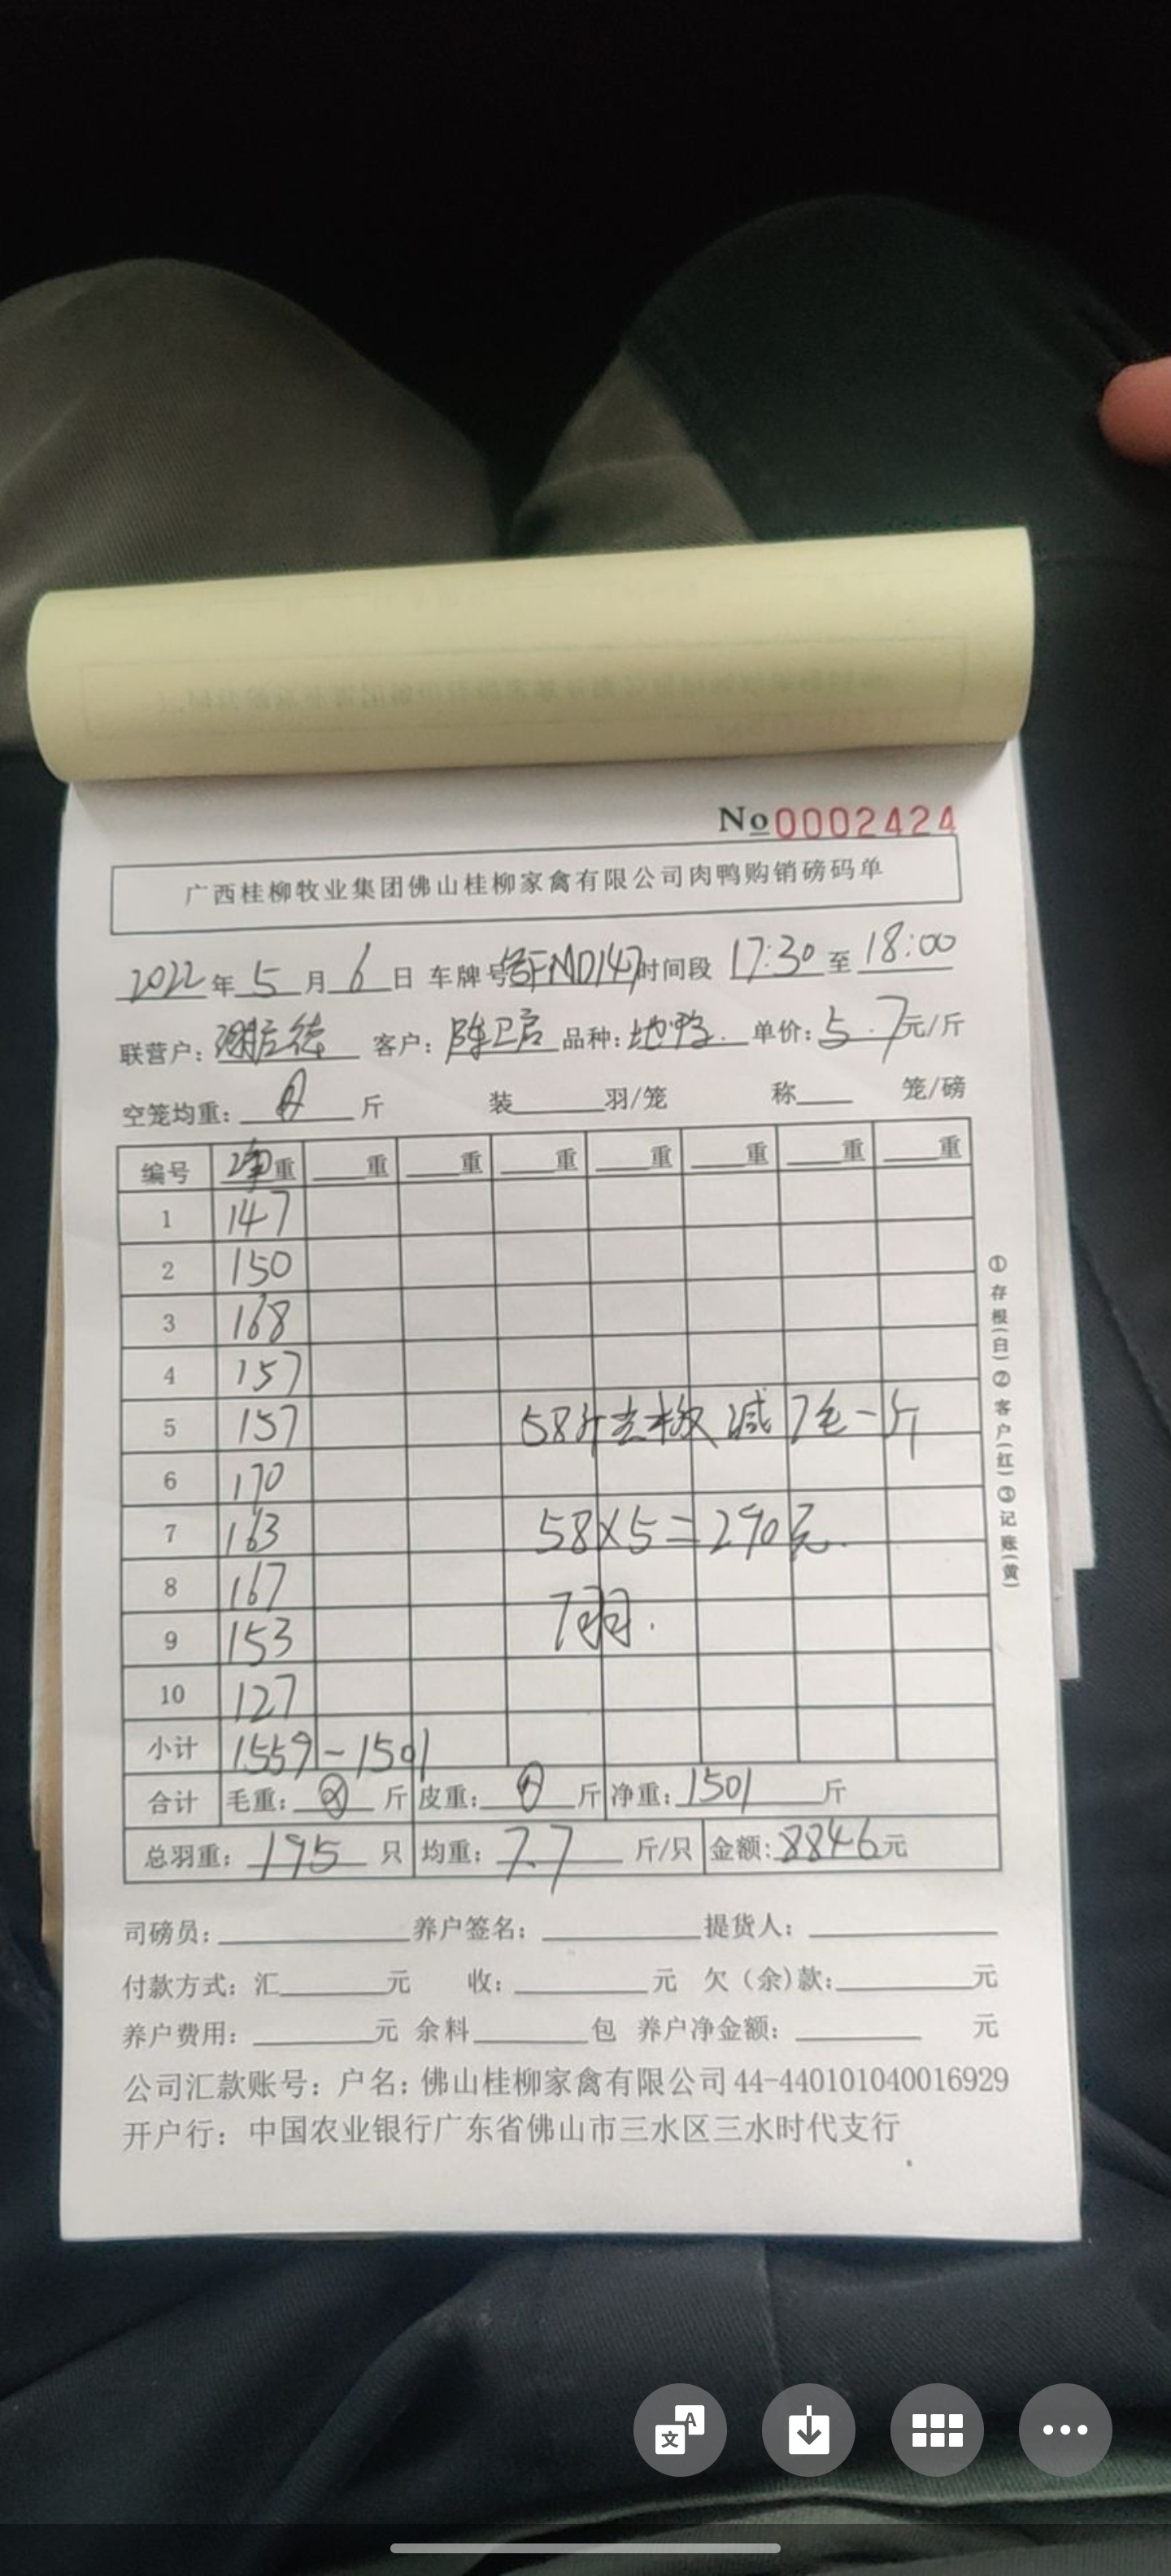 No0002424
广西桂柳牧业集团佛山桂柳家禽有限公司肉鸭购销磅码单
2022年5月6日 车牌号 FMD147 时间段 17:30至18:00
联营户: 客户:陈卫启 品种:地鸭. 单价:5.7元/斤
空笼均重: 斤 装 羽/笼 称 笼/磅
编号 净重 重 重 重 重 重 重 重
1 147
2 150
3 168
4 157
5 157 58斤 减7毛一斤
6 170
7 163 58×5=290元.
8 167
9 153 7羽.
10 127
小计 1559-1501
合计 毛重: 斤 皮重: 斤 净重:1501斤
总羽重:195只 均重:7.7斤/只 金额:8846元
司磅员: 养户签名: 提货人:
付款方式:汇 元 收: 元 欠(余)款: 元
养户费用: 元 余料 包 养户净金额: 元
公司汇款账号:户名:佛山桂柳家禽有限公司44-440101040016929
开户行:中国农业银行广东省佛山市三水区三水时代支行
①存根(白)②客户(红)③记账(黄)